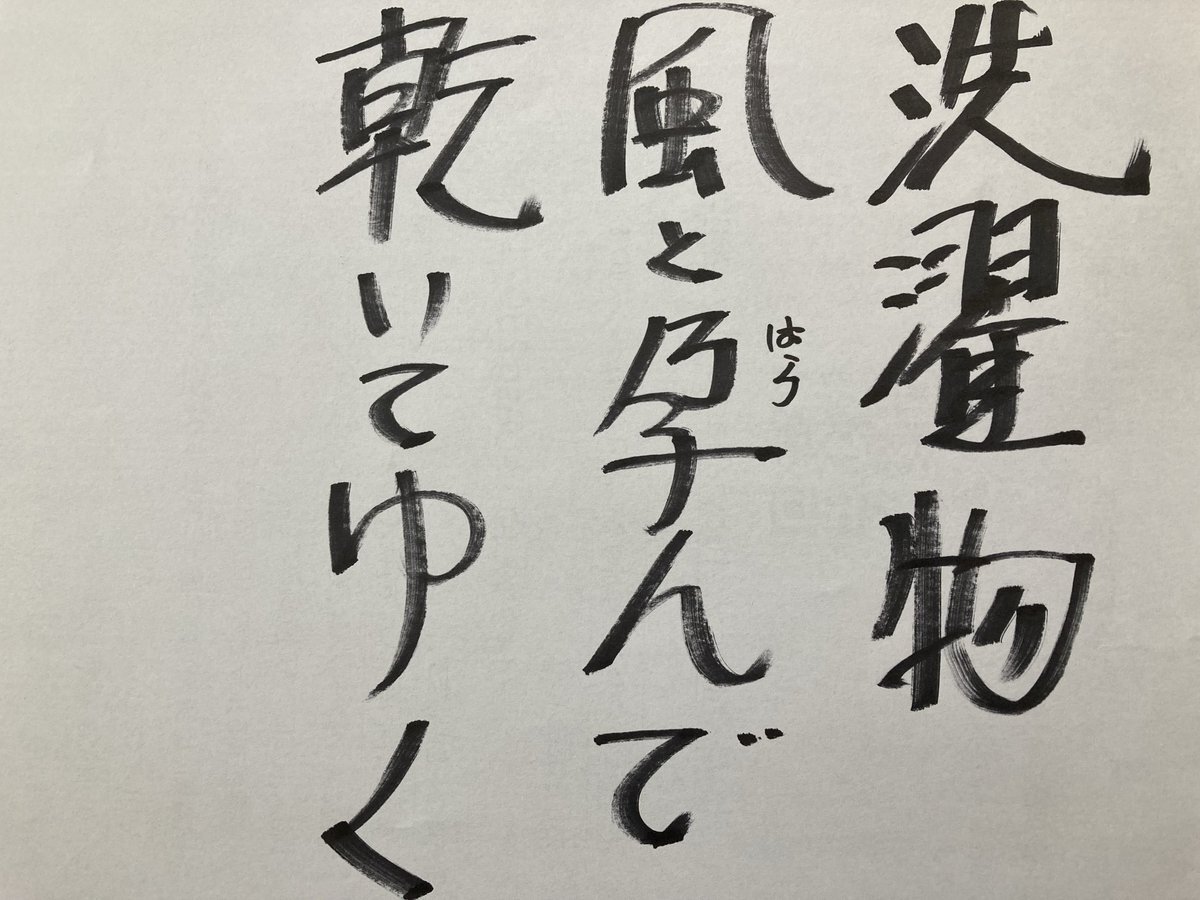 洗濯物
風と孕んで
はら
乾いてゆく